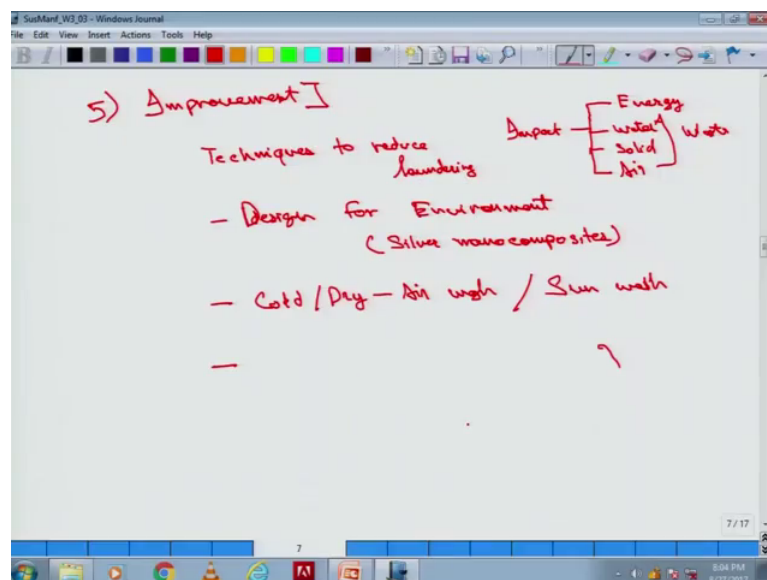 SusManf_W3_03 - Windows Journal
File Edit View Insert Actions Tools Help
5) Improvement I
Techniques to reduce
laundering
Impact
Energy
Water
Solid
Air
Waste
— Design for Environment
(Silver nanocomposites)
— Cold / Dry – Air wash / Sun wash
—
7 / 17
7
8:04 PM